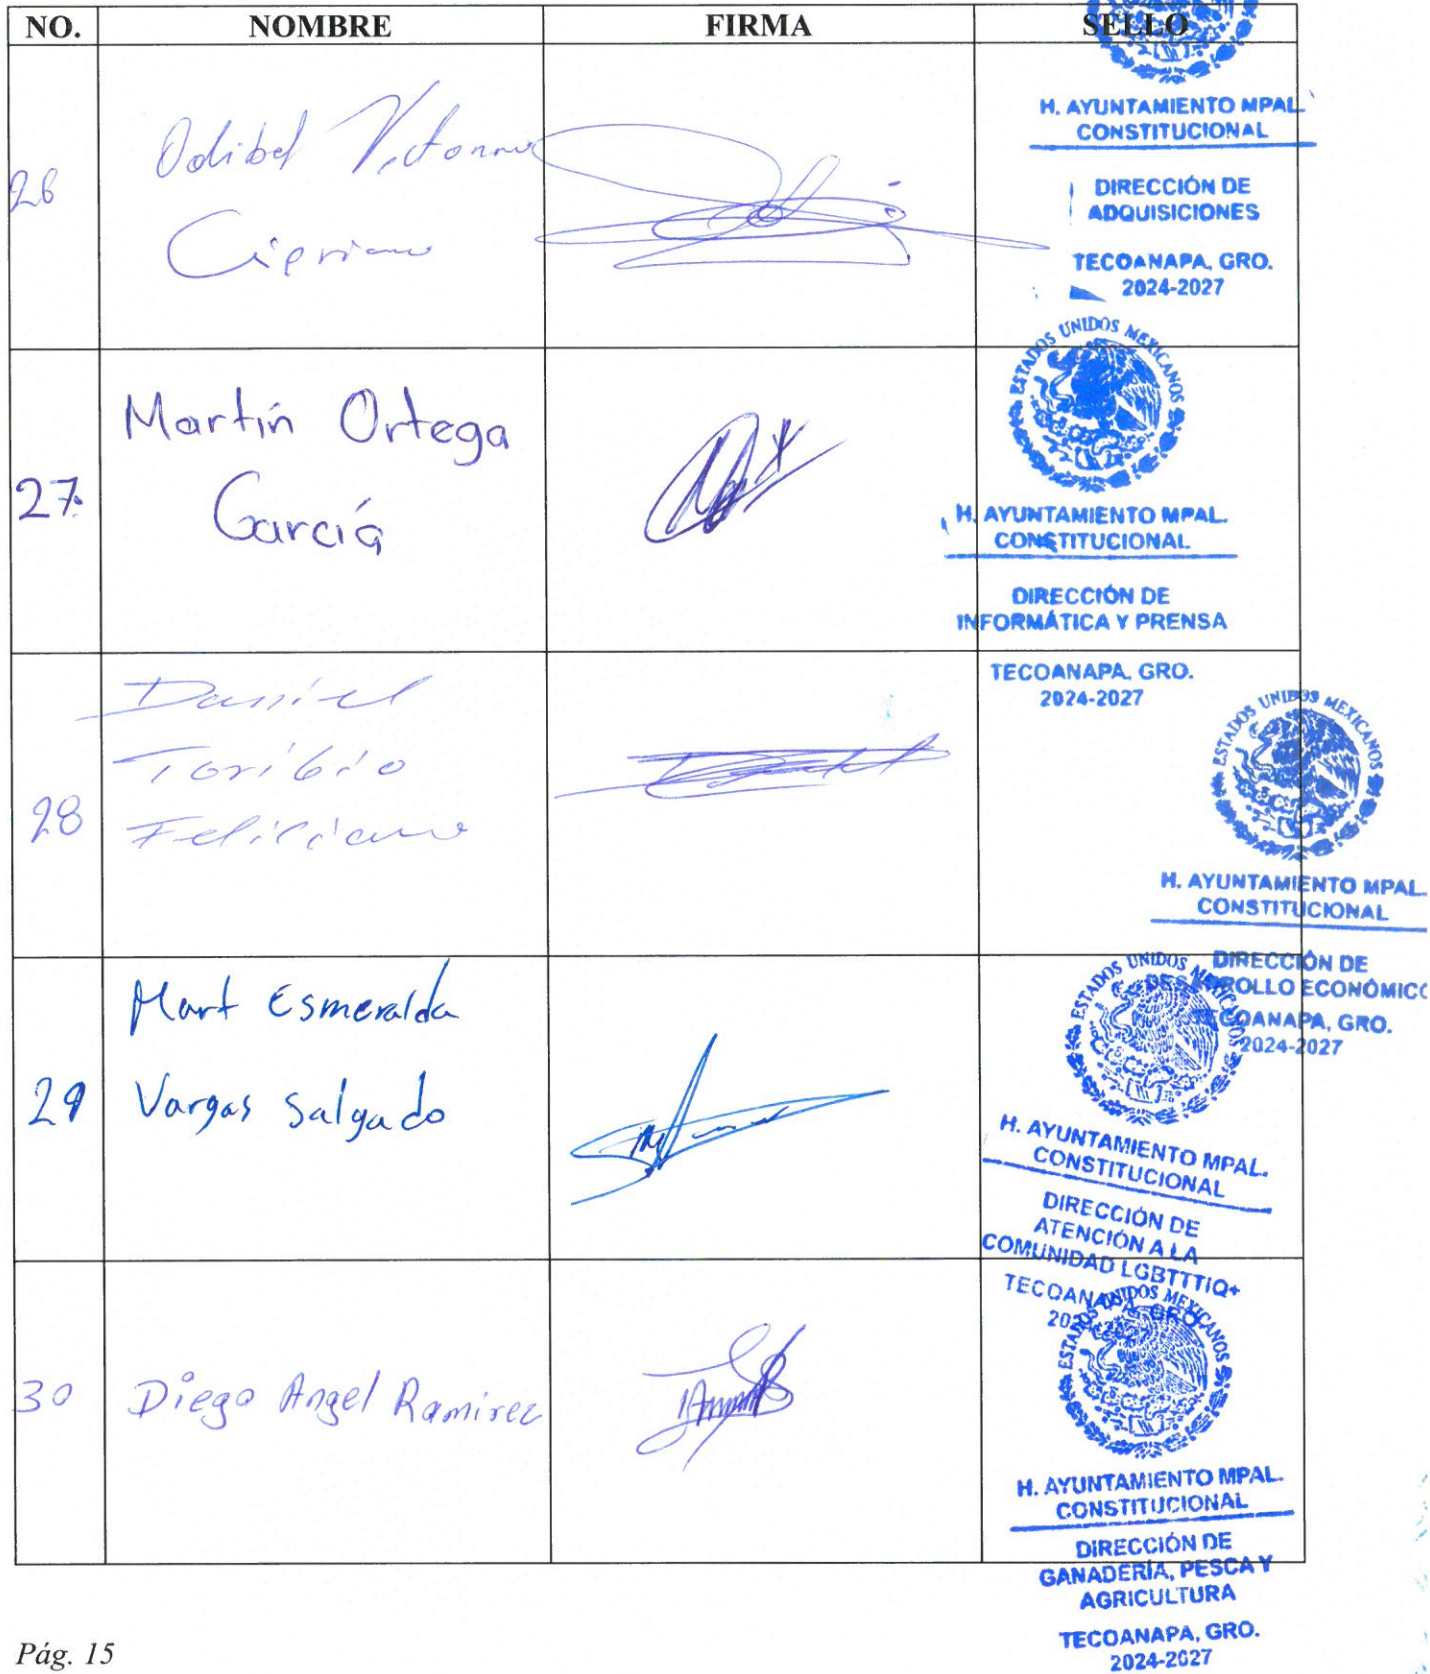 NO. NOMBRE FIRMA SELLO
H. AYUNTAMIENTO MPAL.
CONSTITUCIONAL
DIRECCIÓN DE
ADQUISICIONES
TECOANAPA, GRO.
2024-2027
26
Odibet
Cipriano
ESTADOS UNIDOS MEXICANOS
27
Martín Ortega
García
H. AYUNTAMIENTO MPAL.
CONSTITUCIONAL
DIRECCIÓN DE
INFORMÁTICA Y PRENSA
TECOANAPA, GRO.
2024-2027
28
Daniel
Toribio
Feliciano
ESTADOS UNIDOS MEXICANOS
H. AYUNTAMIENTO MPAL.
CONSTITUCIONAL
DIRECCIÓN DE
DESARROLLO ECONÓMICO
TECOANAPA, GRO.
2024-2027
29
Mart Esmeralda
Vargas Salgado
ESTADOS UNIDOS MEXICANOS
H. AYUNTAMIENTO MPAL.
CONSTITUCIONAL
DIRECCIÓN DE
ATENCIÓN A LA
COMUNIDAD LGBTTTIQ+
TECOANAPA, GRO.
2024-2027
30
Diego Angel Ramirez
ESTADOS UNIDOS MEXICANOS
H. AYUNTAMIENTO MPAL.
CONSTITUCIONAL
DIRECCIÓN DE
GANADERÍA, PESCA Y
AGRICULTURA
TECOANAPA, GRO.
2024-2027
Pág. 15